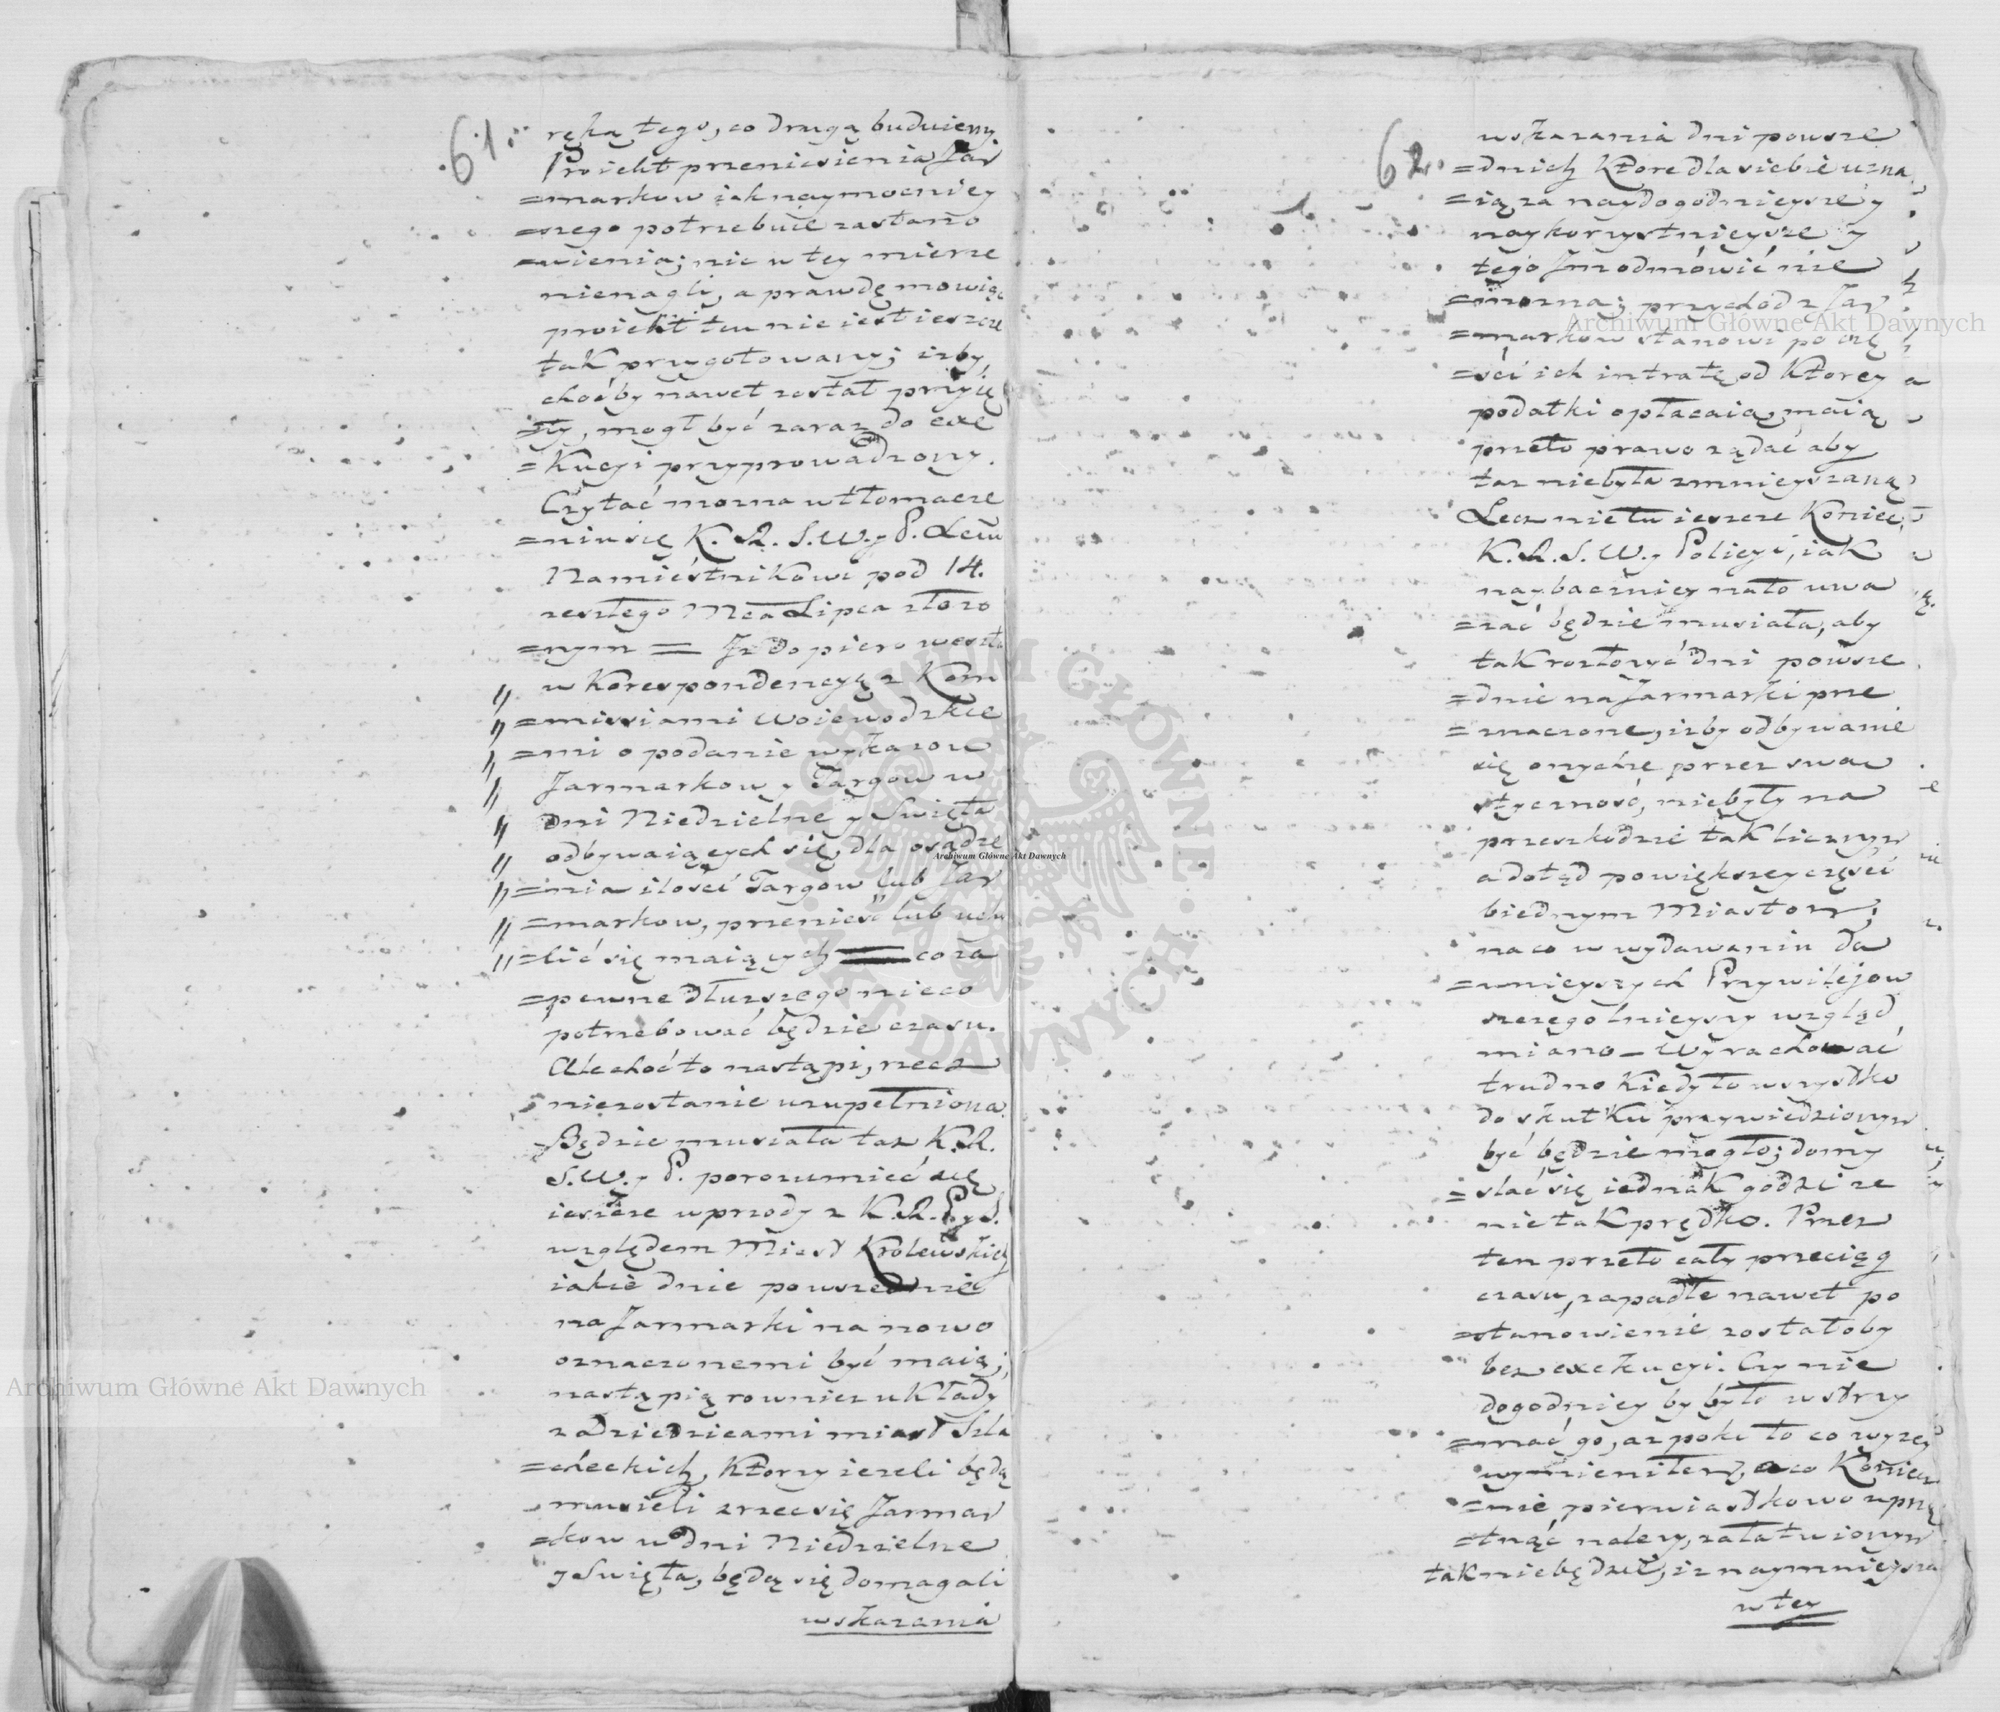 61.
ręką tego, co drugą buduiemy
Proiekt przeniesienia Jar
=markow iak naymocniey
=szego potrzebuie zastano
=wienia; nic w tey mierze
nienagli, a prawdę mowiąc
proiekt ten nie iest ieszcze
tak przygotowany; izby,
choćby nawet został przyię
=ty, mogł być zaraz do exe
=kucyi przyprowadzony.
Czytać można w tłomacze
=niu się K. R. S. W. y P. Xciu
Namiestnikowi pod 14.
zeszłego Mca Lipca złożo
=nym = Iż dopiero weszła
" w korespondencyę z Kom
" =missiami Woiewodzkie
" =mi o podanie wykazow
" Jarmarkow y Targow w
" dni Niedzielne y Swięta
" odbywaiących się, dla osądze
" =nia ilości Targow lub Jar
" =markow, przenieść lub uchy
" =lić się maiących = co za
=pewne dłuższego nieco
potrzebować będzie czasu.
Ale choć to nastąpi, rzecz
niezostanie uzupełniona.
Będzie musiała taż K. R.
S. W. y P. porozumieć się
ieszcze wprzody z K. R. P. y S.
względem Miast Krolewskich
iakie dnie powszednie
na Jarmarki na nowo
oznaczonemi być maią;
nastąpią rownież układy
z dziedzicami miast Szla
=checkich, ktorzy ieżeli będą
musieli zrzec się Jarmar
=kow w dni Niedzielne
y Swięta, będą się domagali
wskazania
62.
wskazania dni powsze
=dnich ktore dla siebie uzna
=ią za naydogodnieysze y
naykorzystnieysze y
tego Im odmówić nie
=można; przychod z Jar
=markow stanowi po czę
=ści ich intratę od ktorey
podatki opłacaią, maią
przeto prawo żądać aby
taż niebyła zmnieyszaną
Lecz nie tu ieszcze koniec,
K. R. S. W. y Policyi, iak
naybaczniey na to uwa
=żać będzie musiała, aby
tak rozłożyć dni powsze
=dnie na Jarmarki prze
=znaczone, izby odbywanie
się onychże przez swą
styczność, niebyły na
przeszkodzie tak licznym
a dotąd powiększey części
biednym Miastom;
na co w wydawaniu da
=wnieyszych Przywilejow
szczegolnieyszy wzgląd
miano – Wyrachować
trudno kiedy to wszystko
do skutku przywiedzionym
być będzie mogło; domy
=slać się iednak godzi że
nie tak prędko. Przez
ten przeto cały przeciąg
czasu, zapadłe nawet po
=stanowienie zostałoby
bez exekucyi. Czy nie
dogodniey by było wstrzy
=mać go, aż poki to co wyżey
wymieniłem, a co koniecz
=nie pierwiastkowo uprzą
=tnąć należy, załatwionym
tak niebędzie, iż naymnieysza
w tey